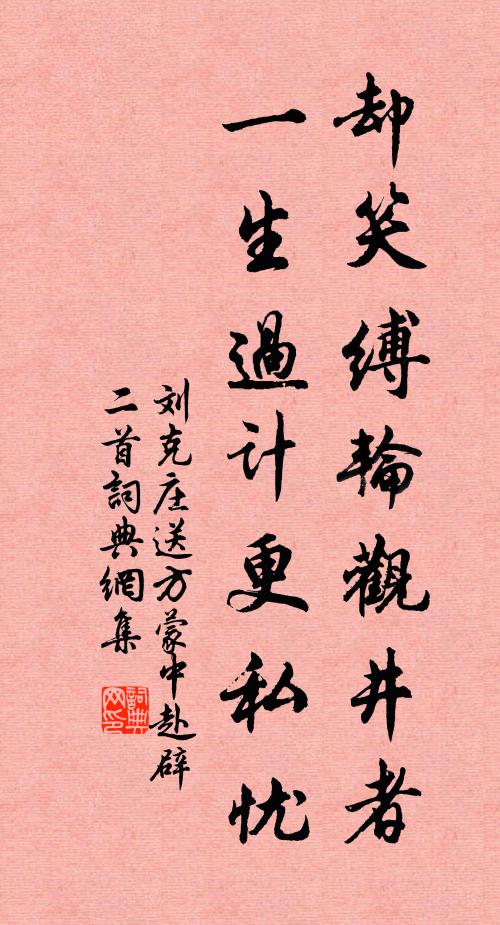 却笑缚輪觀井者
一生過计更私忧
刘克庄送方蒙中赴辟
二首詞典網集
詞典網印